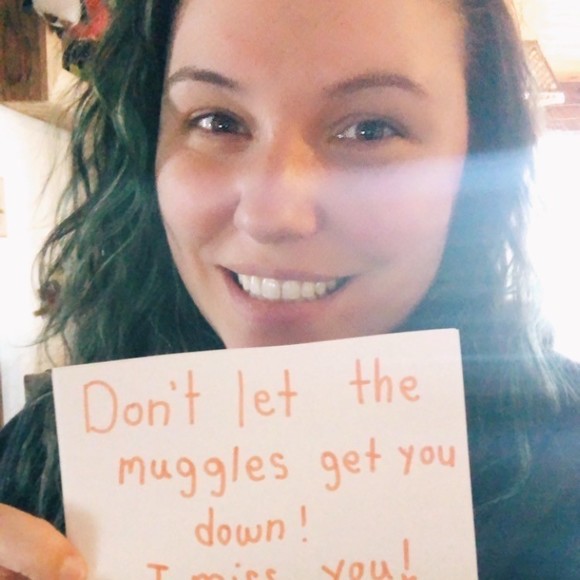 Don't let the
muggles get you
down!
I miss you!